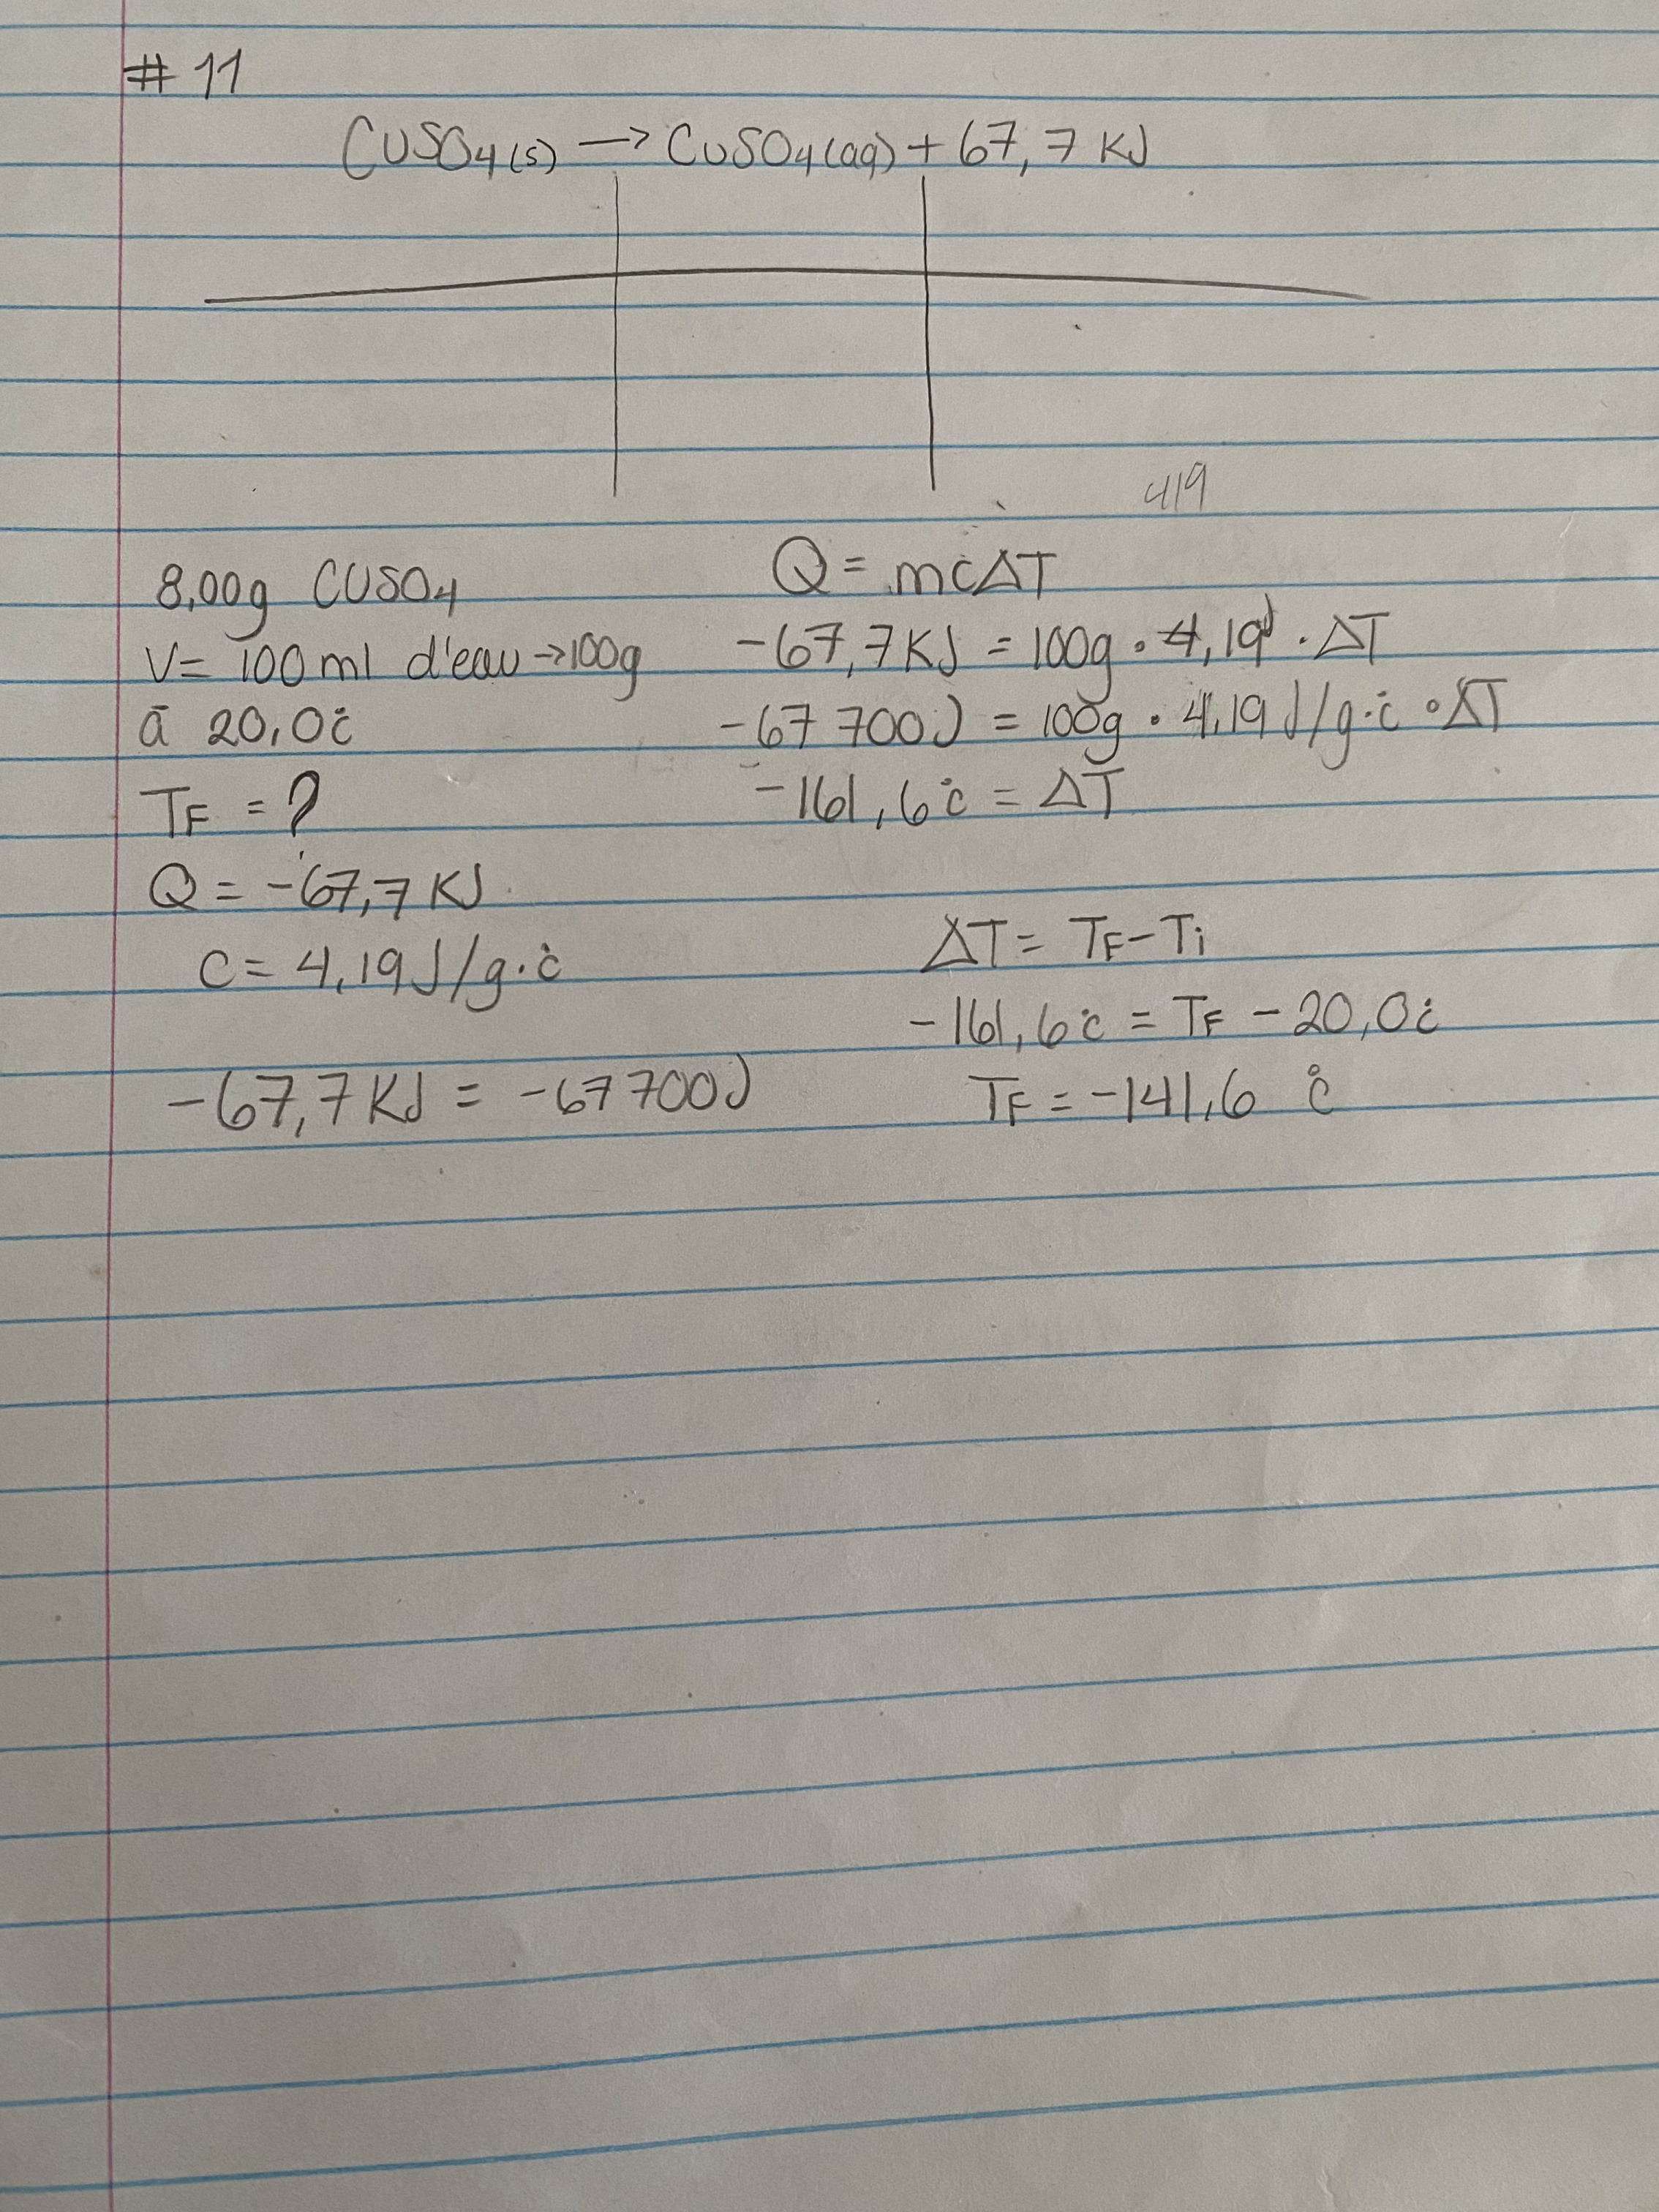 # 11
CUSO4(s) → CuSO4(aq) + 67,7 KJ
419
8,00g CUSO4
V= 100ml d'eau → 100g
à 20,0°c
TF = ?
Q = -67,7 KJ
C = 4,19J/g·°c
-67,7KJ = -67 700J
Q = mcΔT
-67,7KJ = 100g • 4,19J • ΔT
-67 700J = 100g • 4,19J/g·°c • ΔT
-161,6°c = ΔT
ΔT = TF - Ti
-161,6°c = TF - 20,0°c
TF = -141,6 °c